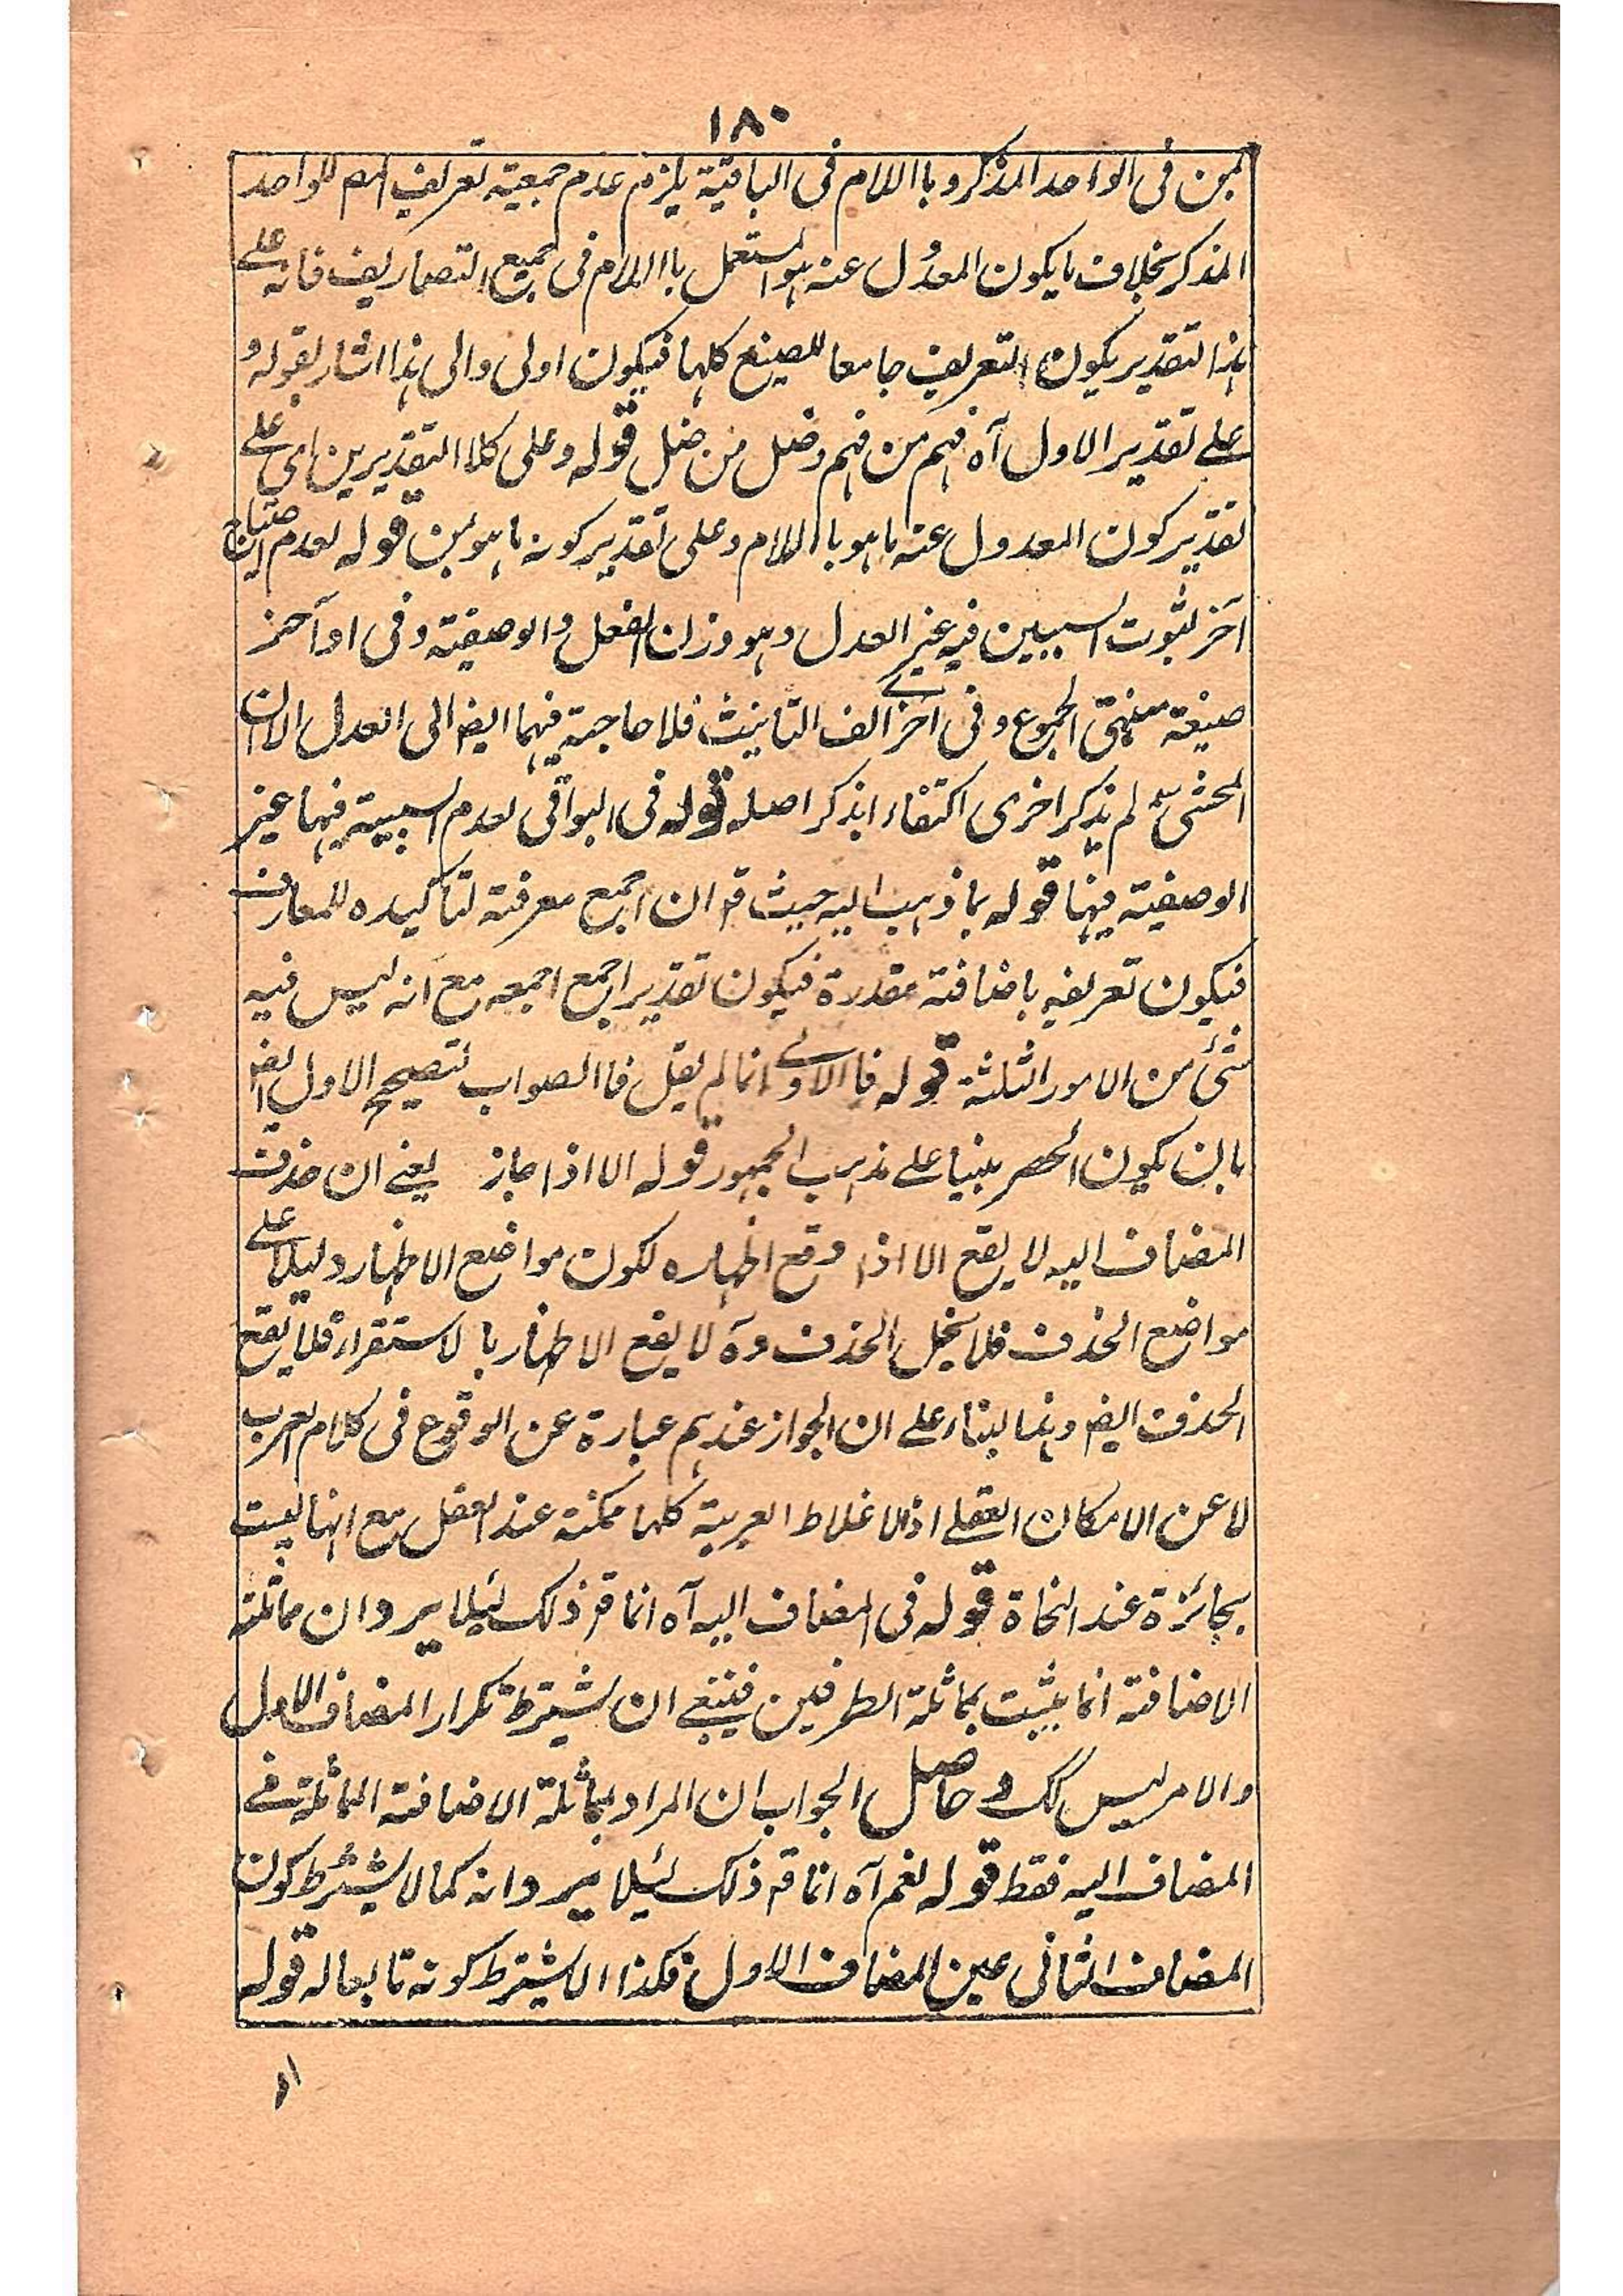 ١٨٠
بمن فى الواحد المذكر و باللام فى الباقية يلزم عدم جمعية تعريف المص للواحد
المذكر بخلاف ما يكون المعدول عنه هو المستعمل باللام فى جميع التصاريف فانه على
هذا التقدير يكون التعريف جامعا للصيغ كلها فيكون اولى والى هذا اشار بقوله و
على تقدير الاول آه فهم من فهم وضل من ضل قوله وعلى كلا التقديرين اى على
تقدير كون المعدول عنه ما هو باللام وعلى تقدير كونه ما هو بمن قوله لعدم احتياج
آخر لثبوت السببين فيه غير العدل وهو وزن الفعل والوصفية وفى اواخر
صيغة منتهى الجموع وفى اخرى الف التانيث فلا حاجة فيهما ايض الى العدل الا ان
المحشى لم يذكر اخرى اكتفاء بذكر اصله قوله فى البواقى لعدم السببية فيها غير
الوصفية فيها قوله بما ذهب اليه حيث قه ان اجمع معرفة لتاكيده للمعارف
فيكون تعريفه باضافة مقدرة فيكون تقدير اجمع اجمعه مع انه ليس فيه
شئ من الامور الثلثة قوله فالاولى انما لم يقل فالصواب لتصحيح الاول ايض
بان يكون الحصر مبنيا على مذهب الجمهور قوله الا اذا جاز يعنى ان حذف
المضاف اليه لا يقع الا اذا وقع اظهاره لكون مواضع الاظهار دليلا على
مواضع الحذف فلا يخل الحذف وة لا يقع الاظهار بالاستقراء فلا يقع
الحذف ايض وهذا بناء على ان الجواز عندهم عبارة عن الوقوع فى كلام العرب
لا عن الامكان العقلى اذ الاغلاط العربية كلها ممكنة عند العقل مع انها ليست
بجائزة عند النحاة قوله فى المضاف اليه آه انما قه ذلك لئلا يرد ان مماثلة
الاضافة انما يثبت بمماثلة الطرفين فينبغى ان يشترط تكرار المضاف الاول
والامر ليس كك و حاصل الجواب ان المراد بمماثلة الاضافة المماثلة فى
المضاف اليه فقط قوله نعم آه انما قه ذلك لئلا يرد انه كما لا يشترط كون
المضاف الثانى عين المضاف الاول فكذا لا يشترط كونه تابعا له قوله